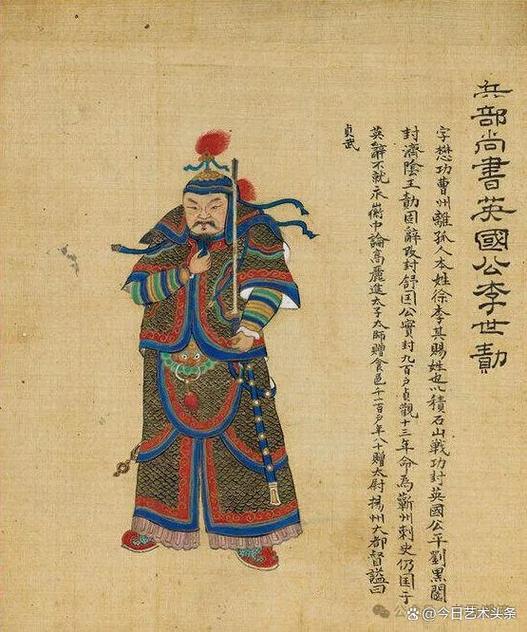 兵部尚書英國公李世勣
字懋功曹州離孤人本姓徐李其賜姓也以積石山戰功封英國公平劉黑闥
封濟陰王勣固辭改封舒国公實封九百戶貞觀十三年命為蘄州刺史仍国于
英辭不就永徽中論高麗進太子太師贈食邑千一百戶年八十贈太尉揚州大都督謚曰
貞武
@今日艺术头条